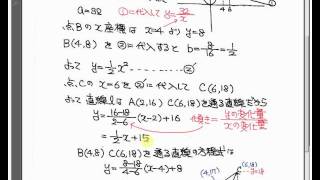 a=32 ①に代入して y=32/x
点Bのx座標は x=4 より y=8
B(4,8)を②に代入すると b=8/16=1/2
y=1/2x²‥‥‥‥②'
点Cのx=6を②'に代入して C(6,18)
よって直線ℓはA(2,16) C(6,18)を通る直線だから
y=16-18/2-6(x-2)+16 傾き=yの変化量/xの変化量
=1/2x+15
B(4,8) C(6,18)を通る直線の方程式は
y=8-18/4-6(x-4)+8
(6,18)
4 6